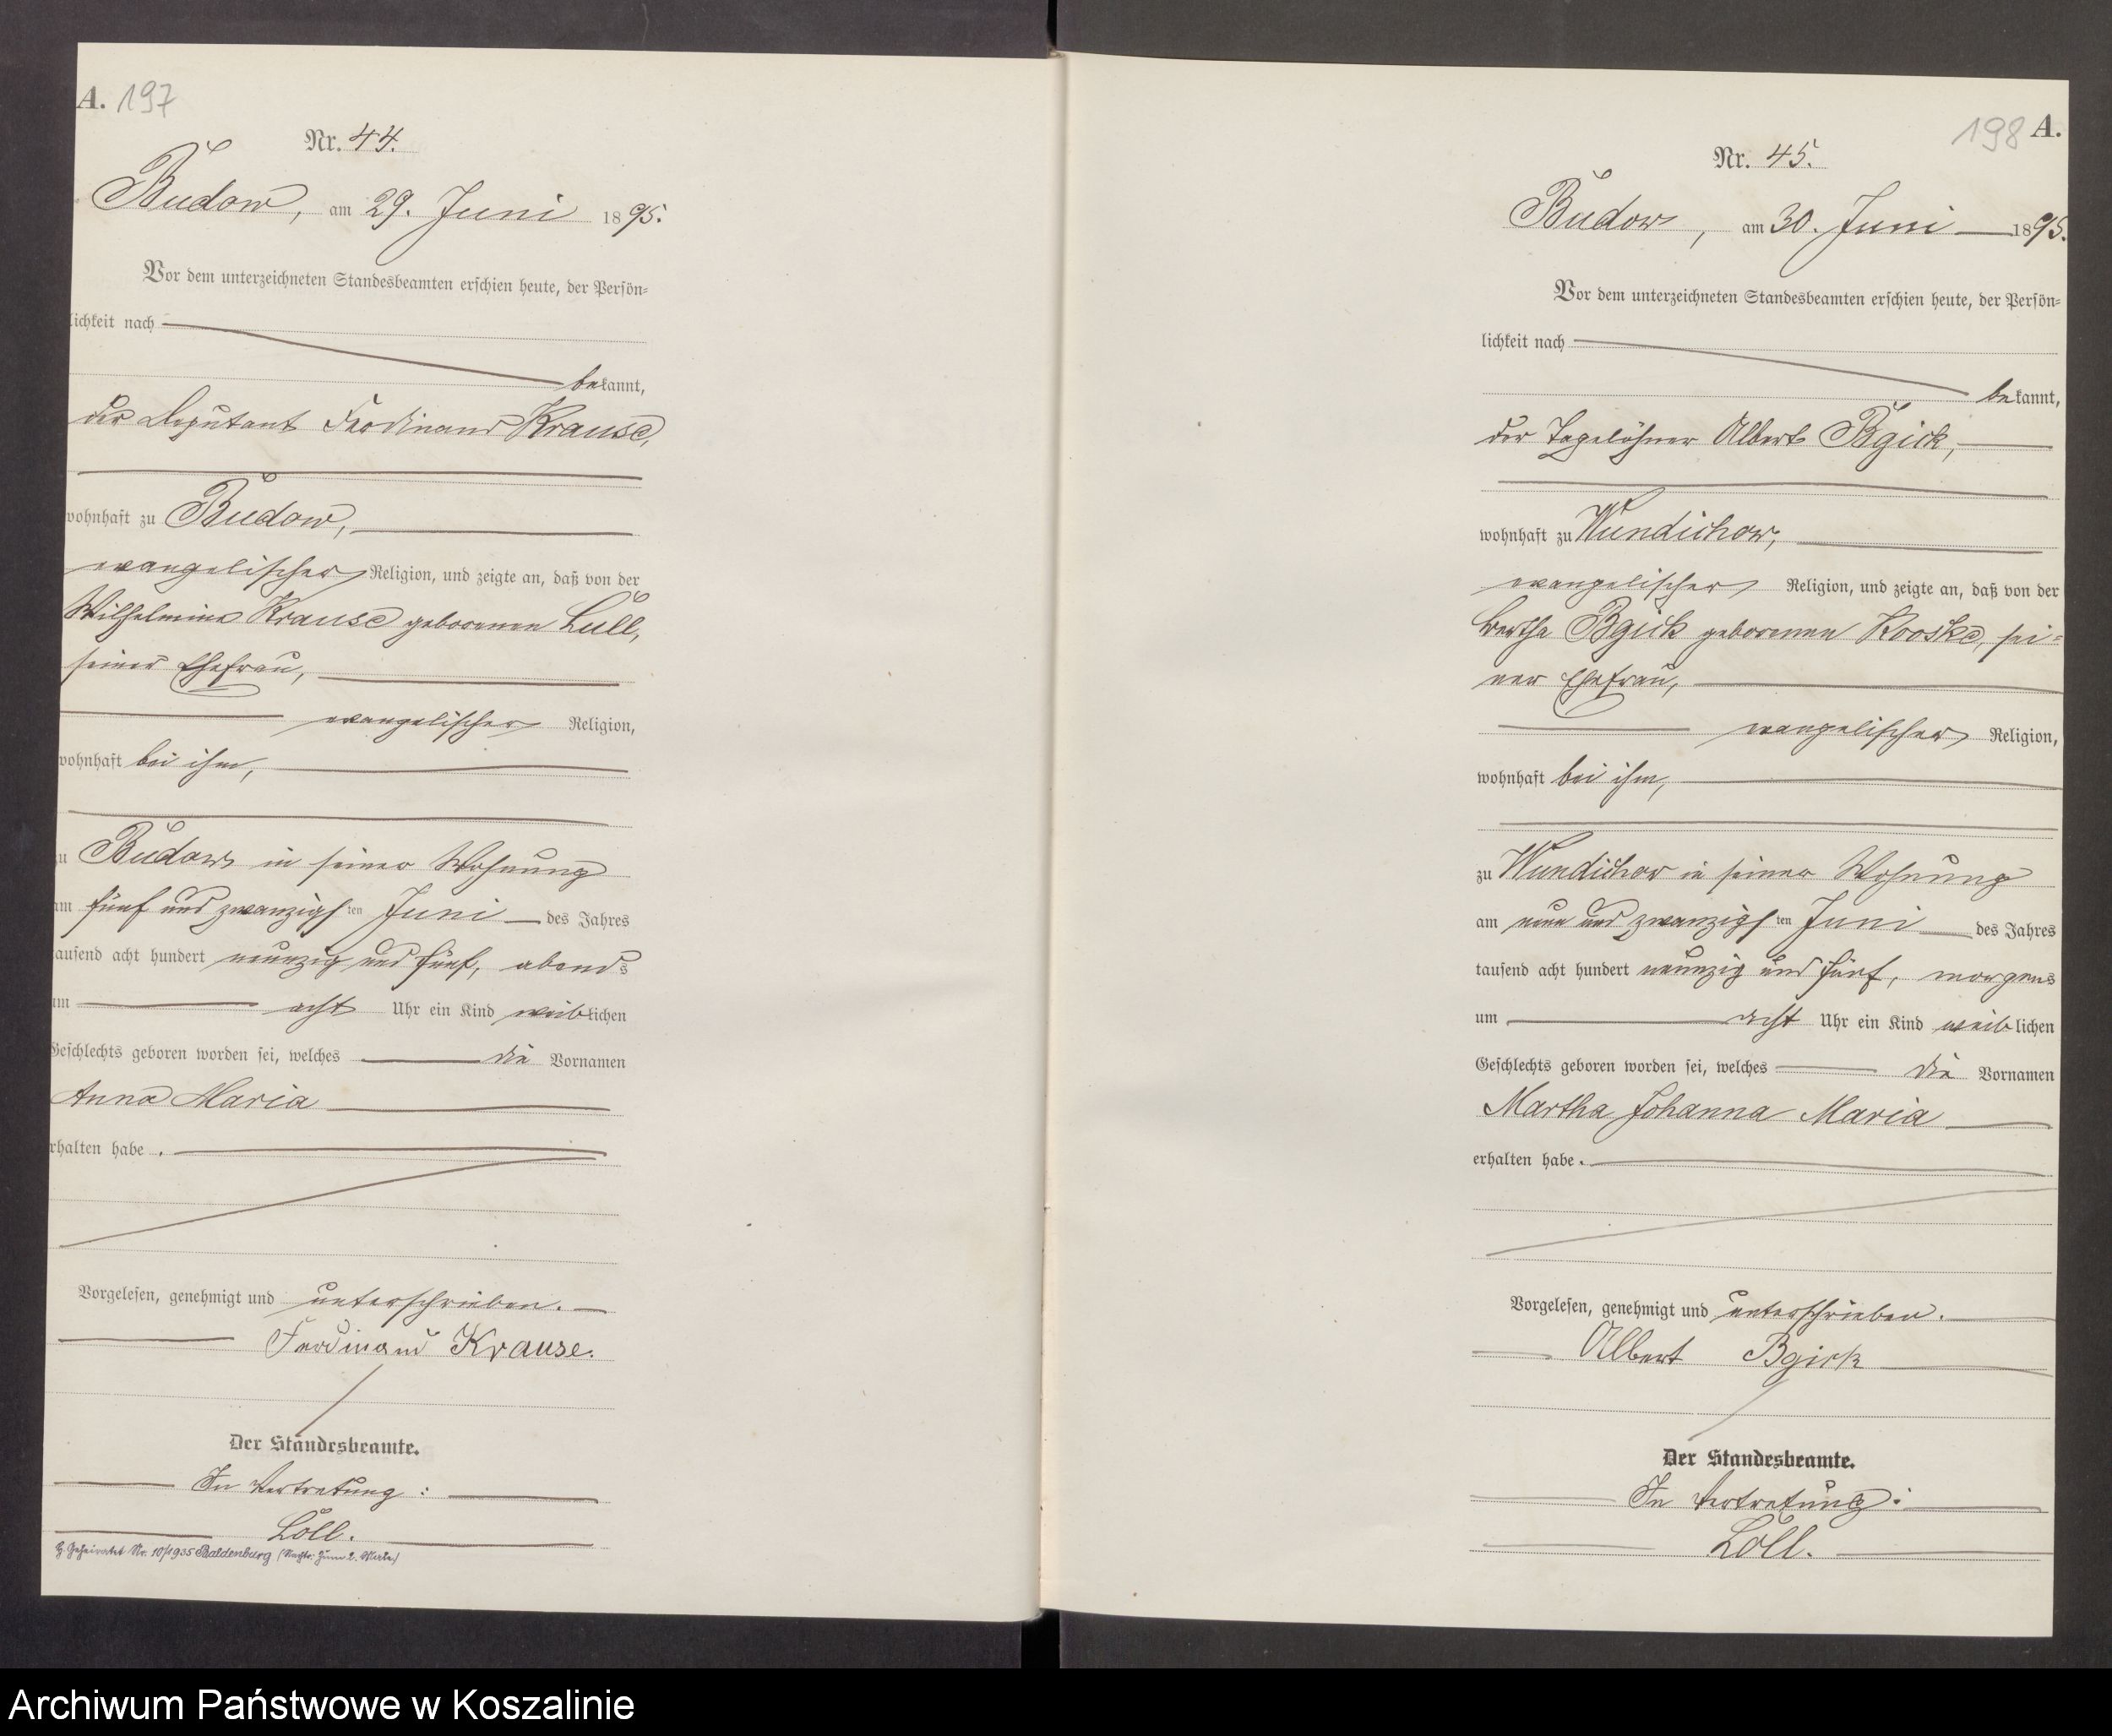 A. 197
Nr. 44.
Budow, am 29. Juni 1895.
Vor dem unterzeichneten Standesbeamten erschien heute, der Persön=
lichkeit nach
bekannt,
der Deputant Ferdinand Krause,
wohnhaft zu Budow,
evangelischer Religion, und zeigte an, daß von der
Wilhelmine Krause geborenen Lüll,
seiner Ehefrau,
evangelischer Religion,
wohnhaft bei ihm,
zu Budow in seiner Wohnung
am fünf und zwanzigsten Juni des Jahres
tausend acht hundert neunzig und fünf, abends
um acht Uhr ein Kind weiblichen
Geschlechts geboren worden sei, welches die Vornamen
Anna Maria
erhalten habe.
Vorgelesen, genehmigt und unterschrieben.
Ferdinand Krause.
Der Standesbeamte.
In Vertretung:
Löll.
Geheiratet Nr. 10/1935 Baldenburg
198 A.
Nr. 45.
Budow, am 30. Juni 1895.
Vor dem unterzeichneten Standesbeamten erschien heute, der Persön=
lichkeit nach
bekannt,
der Tagelöhner Albert Bgick,
wohnhaft zu Wundichow,
evangelischer Religion, und zeigte an, daß von der
Bertha Bgick geborenen Kooske, sei=
ner Ehefrau,
evangelischer Religion,
wohnhaft bei ihm,
zu Wundichow in seiner Wohnung
am neun und zwanzigsten Juni des Jahres
tausend acht hundert neunzig und fünf, morgens
um acht Uhr ein Kind weiblichen
Geschlechts geboren worden sei, welches die Vornamen
Martha Johanna Maria
erhalten habe.
Vorgelesen, genehmigt und unterschrieben.
Albert Bgick
Der Standesbeamte.
In Vertretung:
Löll.
Archiwum Państwowe w Koszalinie